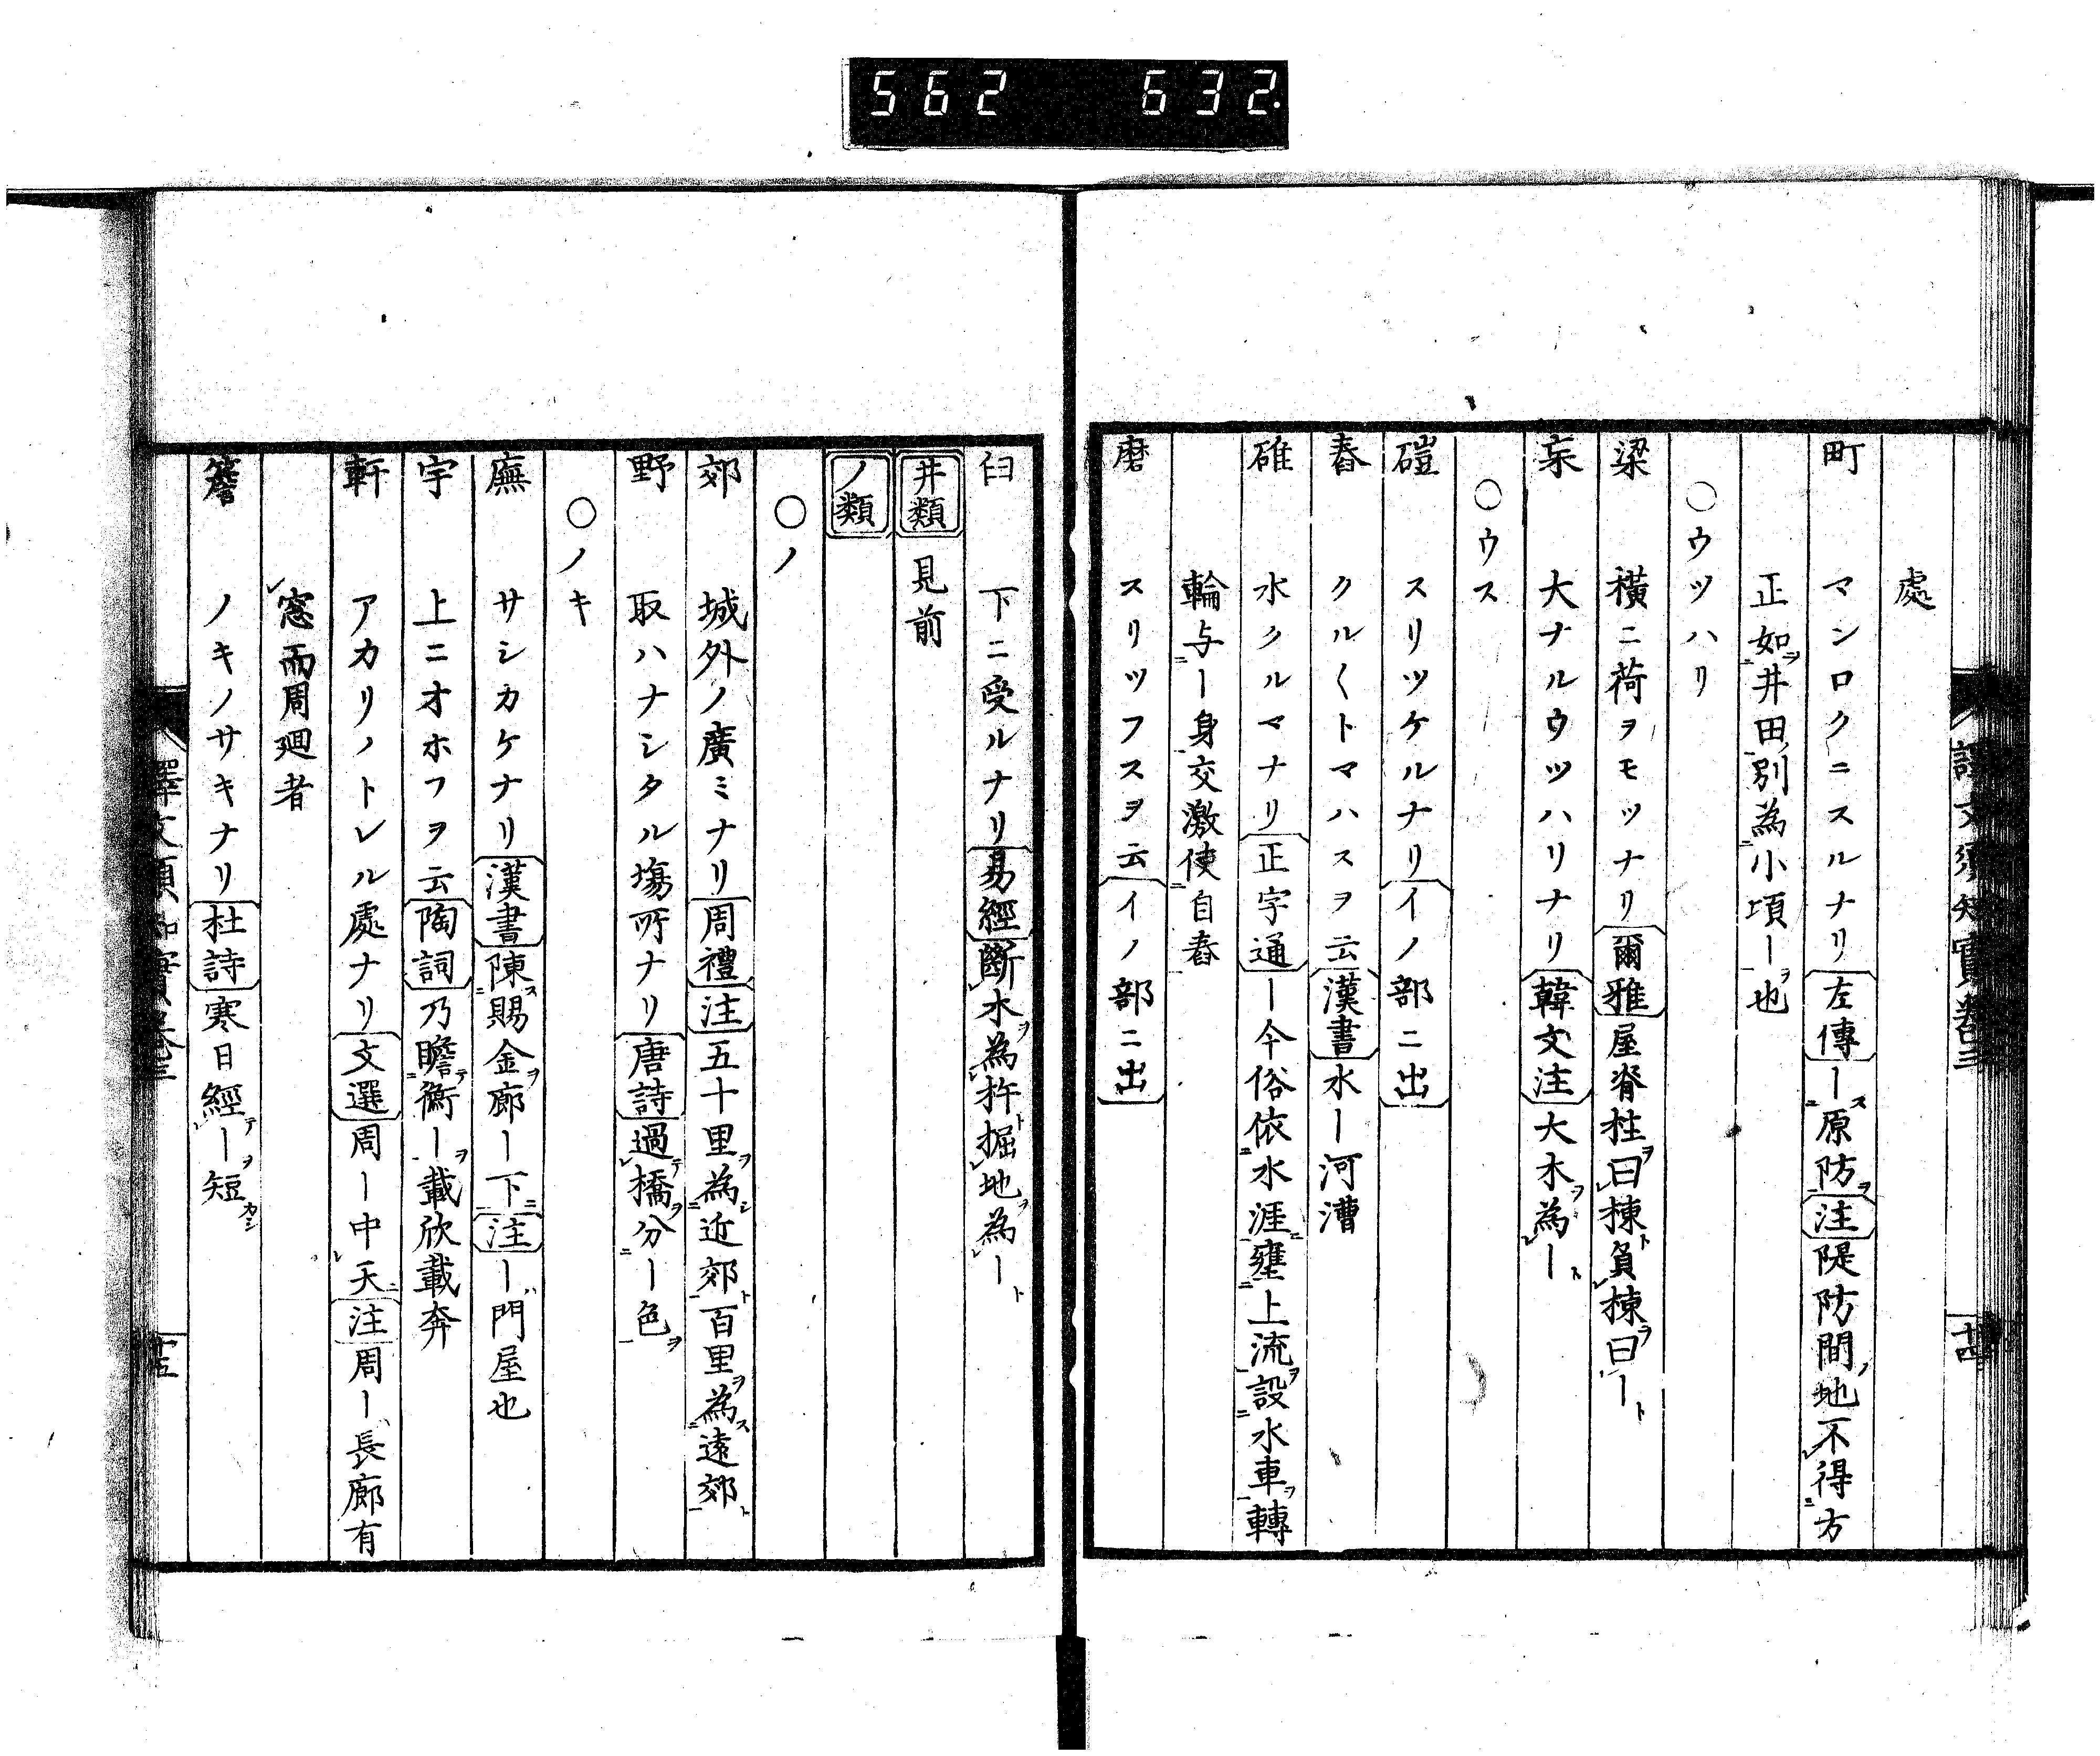 562 632.
處
町 マンロクニスルナリ左傳ー原防注隄防間地不得方
正如井田別為小頃ー也
○ウツハリ
梁 横ニ荷ヲモツナリ爾雅屋脊柱曰棟負棟曰ー
杗 大ナルウツハリナリ韓文注大木為ー
○ウス
磑 スリツケルナリイノ部ニ出
舂 クル〱トマハスヲ云漢書水ー河漕
碓 水クルマナリ正字通ー今俗依水涯壅上流設水車轉
輪与ー身交激使自舂
磨 スリツフスヲ云イノ部ニ出
臼 下ニ受ルナリ易經斷木為杵掘地為ー
井類 見前
ノ類
○ノ
郊 城外ノ廣ミナリ周禮注五十里為近郊百里為遠郊
野 取ハナシタル場所ナリ唐詩過橋分ー色
○ノキ
廡 サシカケナリ漢書陳賜金廊ー下注ー門屋也
宇 上ニオホフヲ云陶詞乃瞻衡ー載欣載奔
軒 アカリノトレル處ナリ文選周ー中天注周ー長廊有
窓而周廻者
簷 ノキノサキナリ杜詩寒日經ー短
譯文須知實卷三
十五